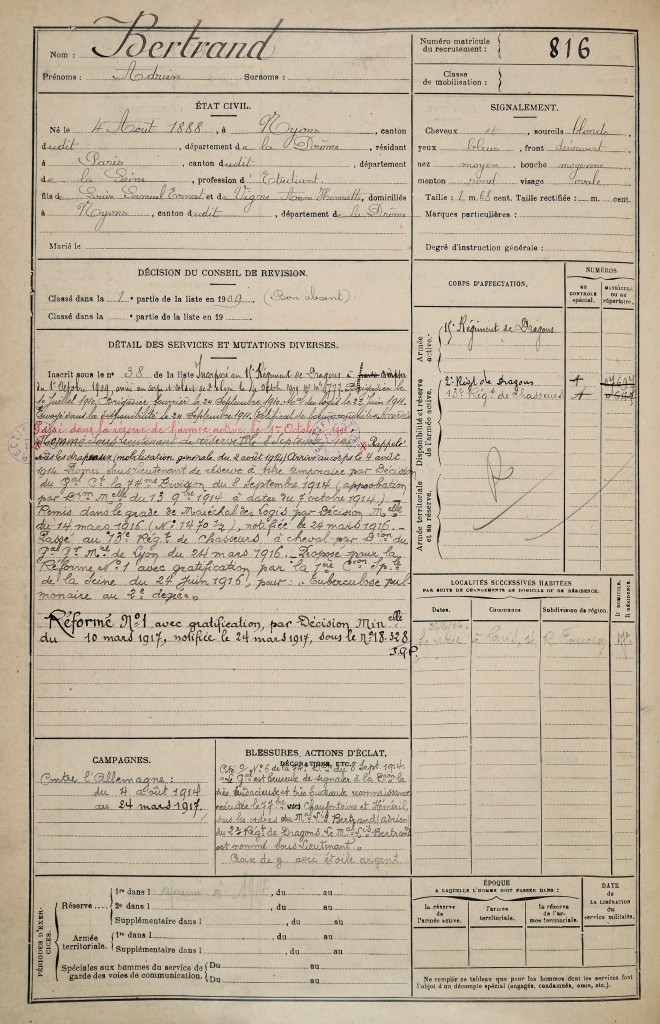 Nom : Bertrand
Prénoms : Adrien Surnoms :
Numéro matricule du recrutement : 816
Classe de mobilisation :
ÉTAT CIVIL.
Né le 4 Août 1888, à Nyons, canton
dudit, département de la Drôme, résidant
à Paris, canton dudit, département
de la Seine, profession d'Etudiant,
fils de Louis Samuel Ernest et de Vigne Henriette, domiciliés
à Nyons, canton dudit, département de la Drôme
Marié le
SIGNALEMENT.
Cheveux et, sourcils blonds,
yeux bleus, front découvert
nez moyen, bouche moyenne
menton rond visage ovale
Taille : 1 m. 68 cent. Taille rectifiée : m. cent.
Marques particulières :
Degré d'instruction générale :
DÉCISION DU CONSEIL DE REVISION.
Classé dans la 1e partie de la liste en 1909 (Bon absent)
Classé dans la partie de la liste en 19
CORPS D'AFFECTATION.
NUMÉROS
AU CONTRÔLE spécial.
MATRICULE OU AU répertoire.
Armée active.
15e Régiment de Dragons
Disponibilité et réserve de l'armée active.
2e Régt de Dragons
13e Régt de Chasseurs
Armée territoriale et sa réserve.
R
DÉTAIL DES SERVICES ET MUTATIONS DIVERSES.
Inscrit sous le n° 38 de la liste Incorporé au 15e Régiment de Dragons à
du 1er Octobre 1909,
le 24 Septembre 1911.
Passé dans la réserve de l'armée active le 1er Octobre 1911
Nommé Sous lieutenant de réserve Rappelé
sous les drapeaux (mobilisation générale du 2 août 1914) Arrivé au corps le 4 août
1914. Promu sous lieutenant de réserve à titre temporaire par Décision
du Gal Ct la 74me Division du 8 Septembre 1914 (approbation
par Dion Melle du 13 9bre 1914 à dater du 7 octobre 1914).-
Remis dans le grade de Maréchal des Logis par Décision Melle
du 14 mars 1916 (N° 14703), notifiée le 24 mars 1916.-
Passé au 13e Régt de Chasseurs à cheval par Dion du
Gal Gr Mre de Lyon du 24 mars 1916. Proposé pour la
Réforme N° 1 avec gratification par la 1ère Cion Sple
de la Seine du 24 Juin 1916, pour : "Tuberculose pul-
monaire au 2e degré".
Réformé N°1 avec gratification, par Décision Minelle
du 10 mars 1917, notifiée le 24 mars 1917, sous le N° 18.328
LOCALITÉS SUCCESSIVES HABITÉES
PAR SUITE DE CHANGEMENTS DE DOMICILE OU DE RÉSIDENCE.
Dates. Communes Subdivision de région. D DOMICILE. R RÉSIDENCE.
à Paris
CAMPAGNES.
Contre l'Allemagne :
du 4 août 1914
au 24 mars 1917.
BLESSURES, ACTIONS D'ÉCLAT, DÉCORATIONS, ETC.
du 8 Sept. 1914
Le Gal est heureux de signaler à la Dion la
très audacieuse et très fructueuse reconnaissance
exécutée le 7 7bre vers Chaufontaine et Héneril,
sous les ordres du Mal Lis Bertrand (Adrien)
du 2e Régt de Dragons. Le Mal Lis Bertrand
est nommé Sous Lieutenant.
Croix de g. avec étoile argent
PÉRIODES D'EXERCICES.
Réserve 1re dans l , du au
2e dans l , du au
Supplémentaire dans l , du au
Armée territoriale. 1re dans l , du au
Supplémentaire dans l , du au
Spéciales aux hommes du service de garde des voies de communication. Du au
Du au
ÉPOQUE
A LAQUELLE L'HOMME DOIT PASSER DANS :
la réserve de l'armée active.
l'armée territoriale.
la réserve de l'armée territoriale.
DATE
de LA LIBÉRATION du service militaire.
Ne remplir ce tableau que pour les hommes dont les services font
l'objet d'un décompte spécial (engagés, condamnés, omis, etc.).